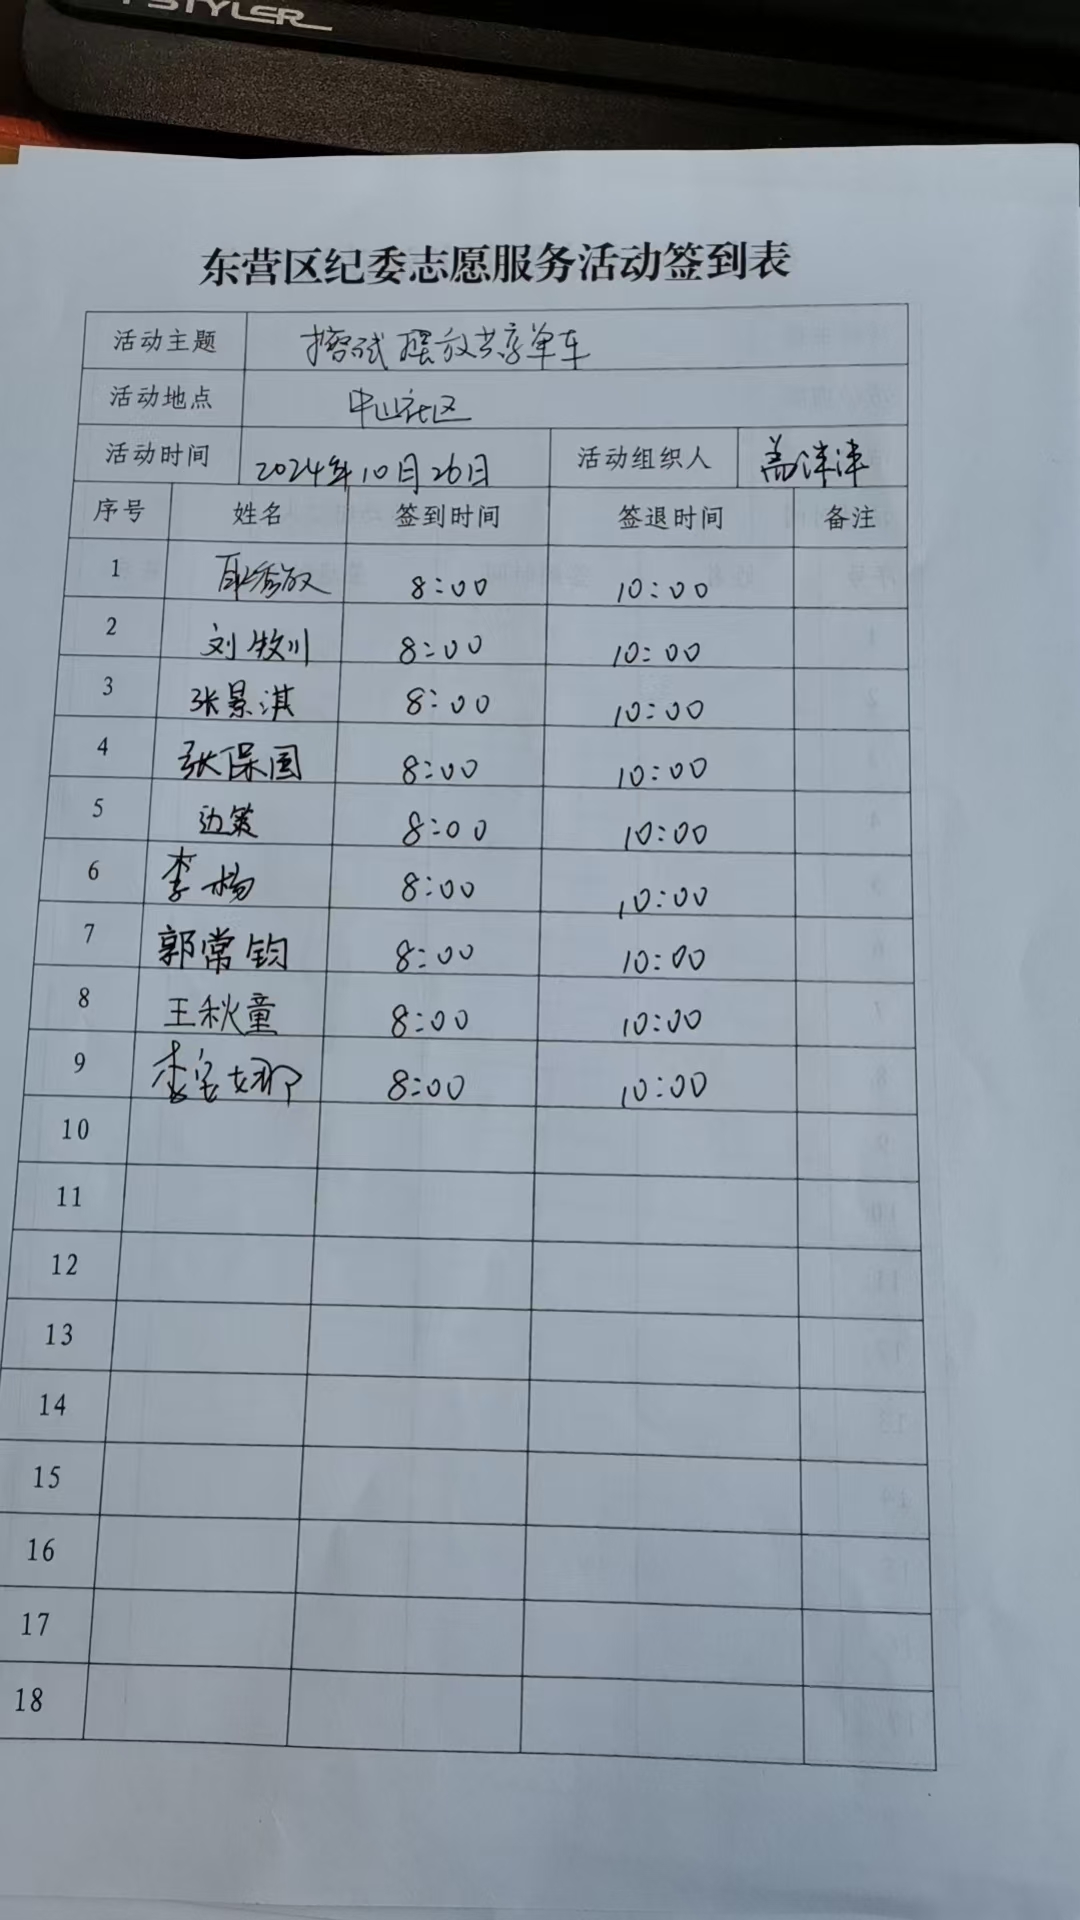 STYLER
东营区纪委志愿服务活动签到表
活动主题 擦试摆放共享单车
活动地点 中山社区
活动时间 2024年10月26日 活动组织人 盖津津
序号 姓名 签到时间 签退时间 备注
1 8:00 10:00
2 刘牧川 8:00 10:00
3 张景淇 8:00 10:00
4 张保国 8:00 10:00
5 边策 8:00 10:00
6 李杨 8:00 10:00
7 郭常钧 8:00 10:00
8 王秋童 8:00 10:00
9 李宝娜 8:00 10:00
10
11
12
13
14
15
16
17
18